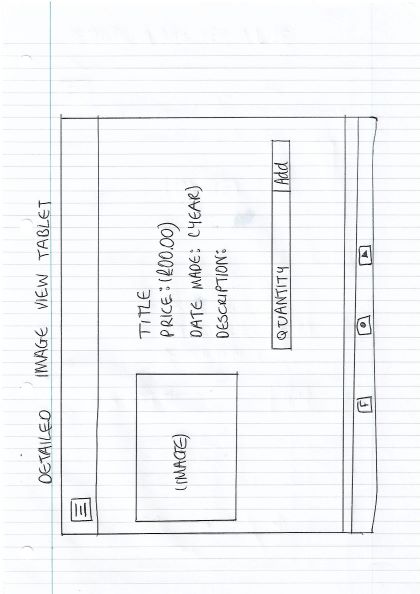 DETAILED IMAGE VIEW TABLET
(IMAGE)
TITLE
PRICE: (£00.00)
DATE MADE: (YEAR)
DESCRIPTION:
QUANTITY Add
f